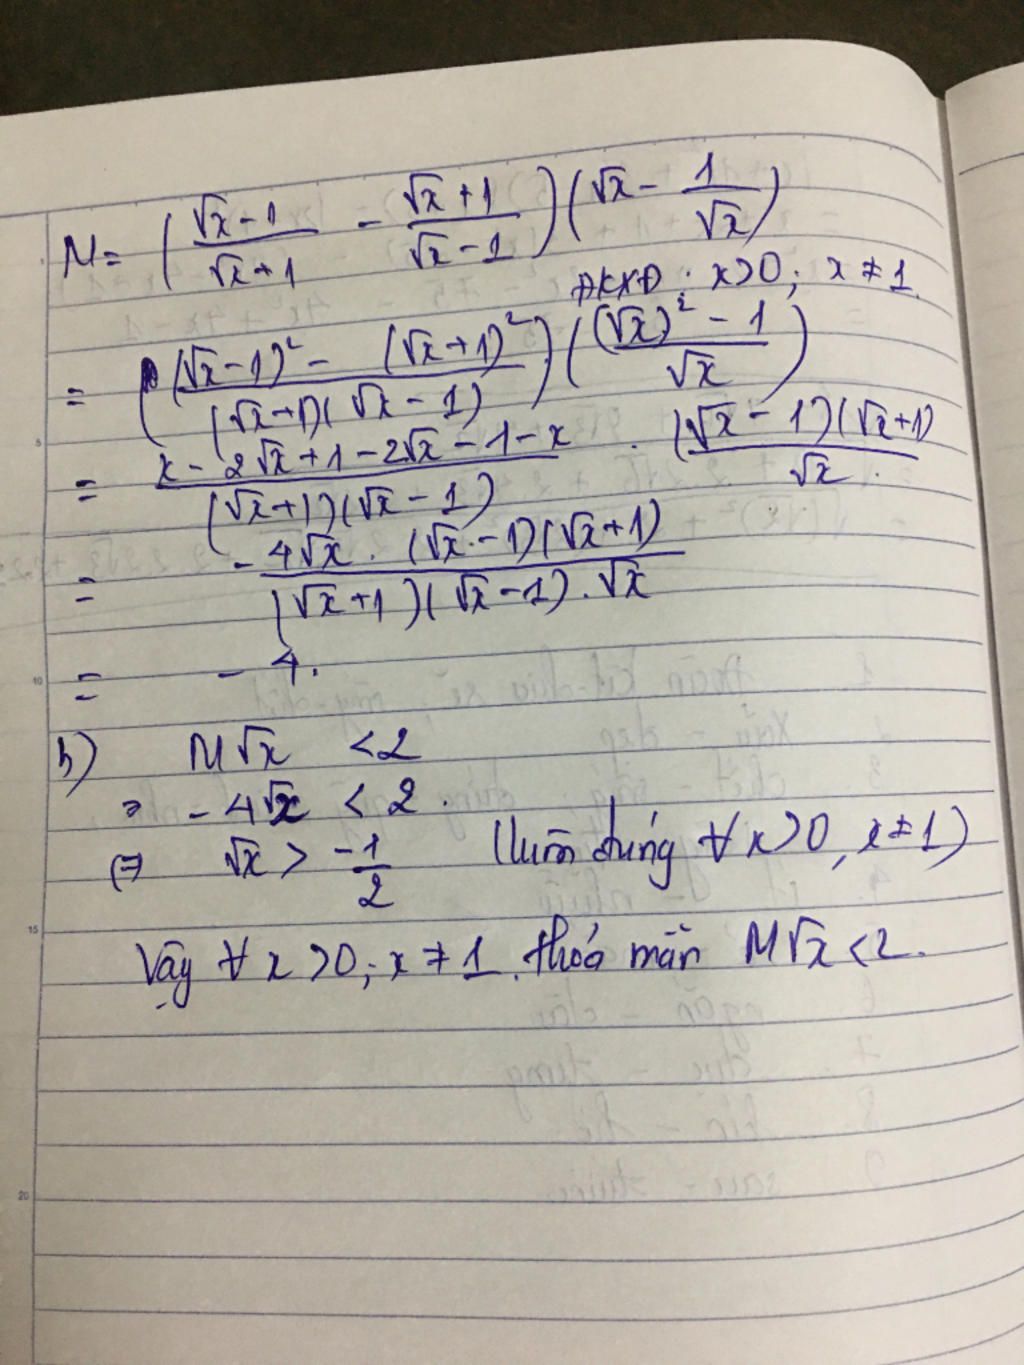 M = ( (√x - 1)/(√x + 1) - (√x + 1)/(√x - 1) ) ( √x - 1/√x )
ĐKXĐ : x > 0 ; x ≠ 1.
= ( ((√x - 1)² - (√x + 1)²)/((√x + 1)(√x - 1)) ) ( ((√x)² - 1)/√x )
= (x - 2√x + 1 - 2√x - 1 - x)/((√x + 1)(√x - 1)) . ((√x - 1)(√x + 1))/√x.
= - (4√x . (√x - 1)(√x + 1))/((√x + 1)(√x - 1) . √x)
= - 4.
b) M√x < 2
⇒ - 4√x < 2.
⇔ √x > -1/2 (luôn đúng ∀ x > 0, x ≠ 1)
Vậy ∀ x > 0 ; x ≠ 1. thoả mãn M√x < 2.
5
10
15
20